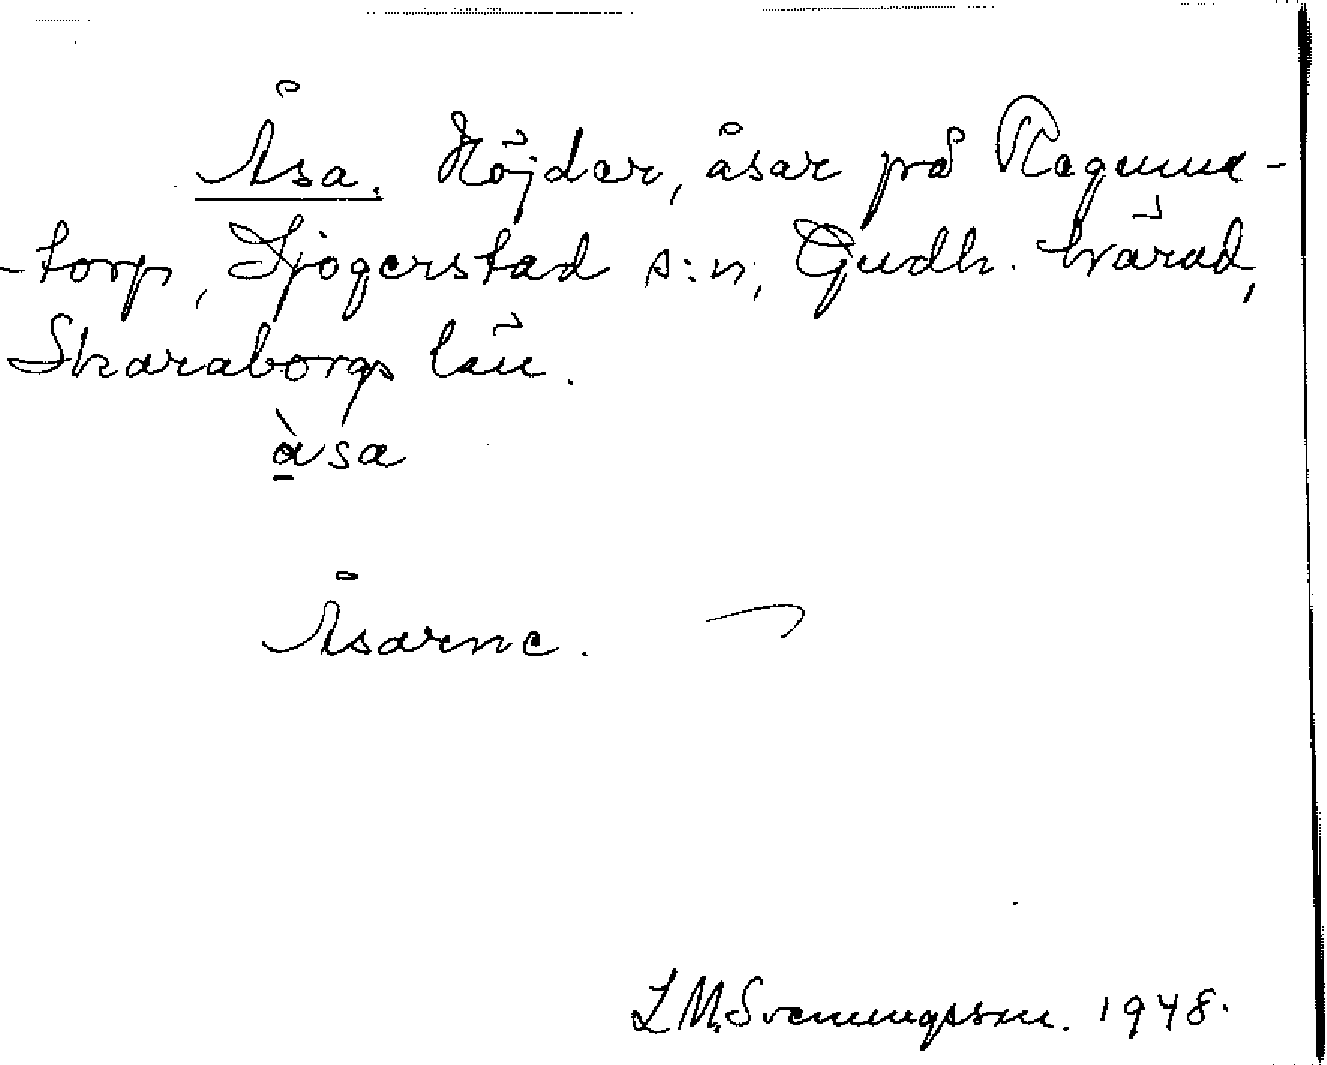 Åsa. Höjdar, åsar på Ragnna-
-torp, Sjögerstad s:n, Gudh. härad,
Skaraborgs län.
àsa
Åsarne.
L M. Svenungsson. 1948.